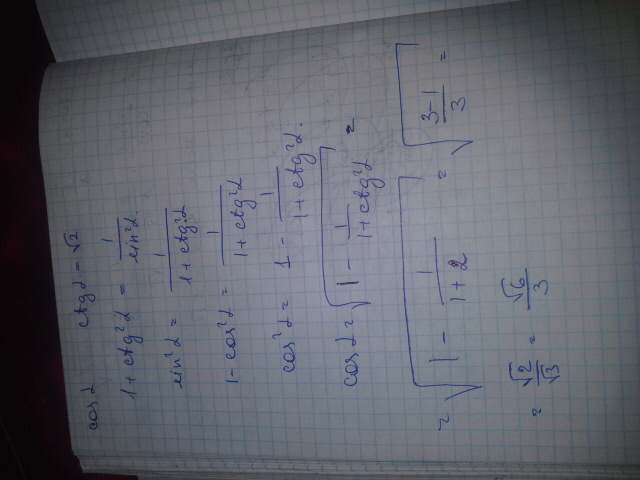 cos α ctg α = √2
1 + ctg²α = 1/sin²α.
sin²α = 1/(1 + ctg²α)
1 - cos²α = 1/(1 + ctg²α)
cos²α = 1 - 1/(1 + ctg²α).
cos α = √(1 - 1/(1 + ctg²α)) =
= √(1 - 1/(1 + 2)) = √((3-1)/3) =
= √2/√3 = √6/3